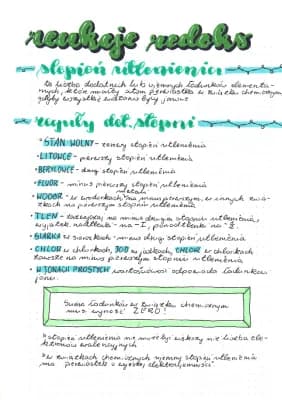 reakcje redoks
stopień utlenienia
to liczba dodatnich lub ujemnych ładunków elementa-
rnych, które miałby atom pierwiastka w związku chemicznym
gdyby wszystkie wiązania były jonowe
reguły dot. stopni
*STAN WOLNY - zerowy stopień utlenienia
- LITOWCE - pierwszy stopień utlenienia
- BERYLOWCE - drugi stopień utlenienia
- FLUOR - minus pierwszy stopień utlenienia
metali
- WODÓR - w wodorkach ma minus pierwszy, w innych zwią-
zkach na pierwszym stopniu utlenienia
- TLEN - zazwyczaj na minus drugim stopniu utlenienia,
wyjątek, nadtlenki - na -I, ponadtlenki na -½.
- SIARKA w siarczkach - minus drugi stopień utlenienia
- CHLOR w chlorkach, JOD w jodkach, w chlorkach
zawsze na minus pierwszym stopniu utlenienia
- W JONACH PROSTYCH wartościowość odpowiada ładunkowi
jonu.
Suma ładunków w związku chemicznym
musi wynosić ZERO!
*stopień utlenienia nie może być większy niż liczba ele-
ktronów walencyjnych
*w związkach chemicznych ujemny stopień utlenienia
ma pierwiastek o wyższej elektroujemności